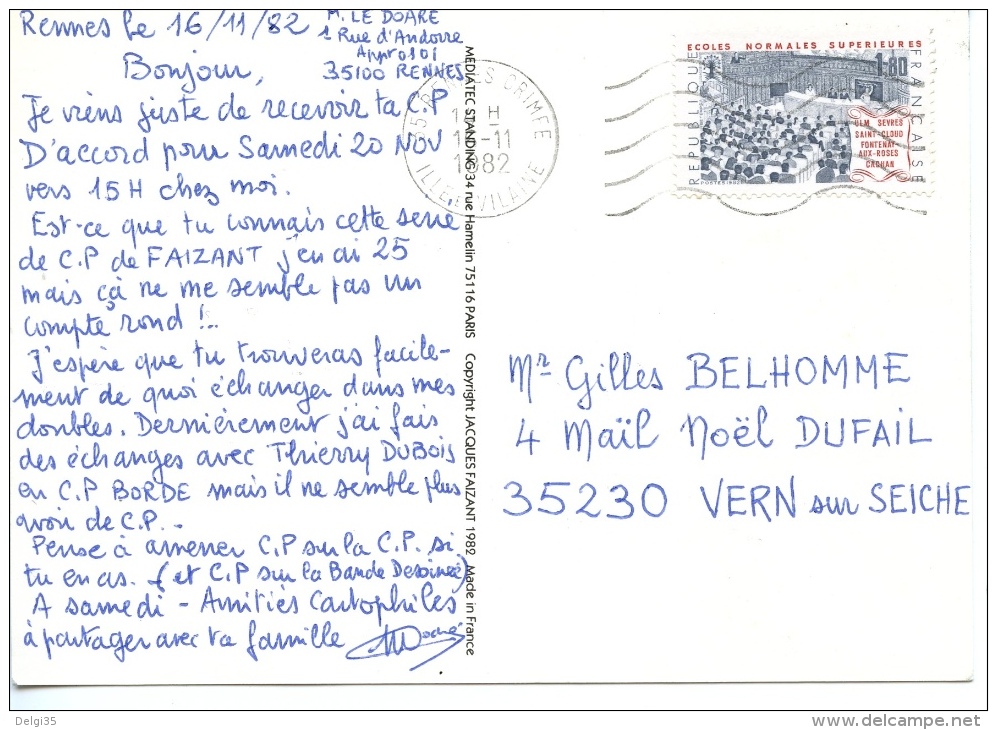 Rennes le 16/11/82
M. LE DOARE
1 Rue d'Andorre
Appt 0101
35100 RENNES
Bonjour,
Je viens juste de recevoir ta C.P
D'accord pour Samedi 20 NOV
vers 15H chez moi.
Est-ce que tu connais cette serie
de C.P de FAIZANT j'en ai 25
mais çà ne me semble pas un
compte rond !..
J'espère que tu trouveras facile-
ment de quoi échanger dans mes
doubles. Dernièrement j'ai fais
des échanges avec Thierry DUBOIS
en C.P BORDE mais il ne semble plus
avoir de C.P. -
Pense à amener C.P sur la C.P. si
tu en as. (et C.P sur la Bande Dessinée)
A samedi - Amitiés Cartophiles
à partager avec ta famille
MEDIATEC STANDING 34 rue Hamelin 75116 PARIS Copyright JACQUES FAIZANT 1982 Made in France
35 RENNES CRIMEE
H
-11
1982
ILLE VILAINE
ECOLES NORMALES SUPERIEURES
REPUBLIQUE
FRANCAISE
1,80
ULM SEVRES
SAINT-CLOUD
FONTENAY-
AUX-ROSES
CACHAN
POSTES 1982
Mr Gilles BELHOMME
4 Maïl Noël DUFAIL
35230 VERN sur SEICHE
Delgi35
www.delcampe.net